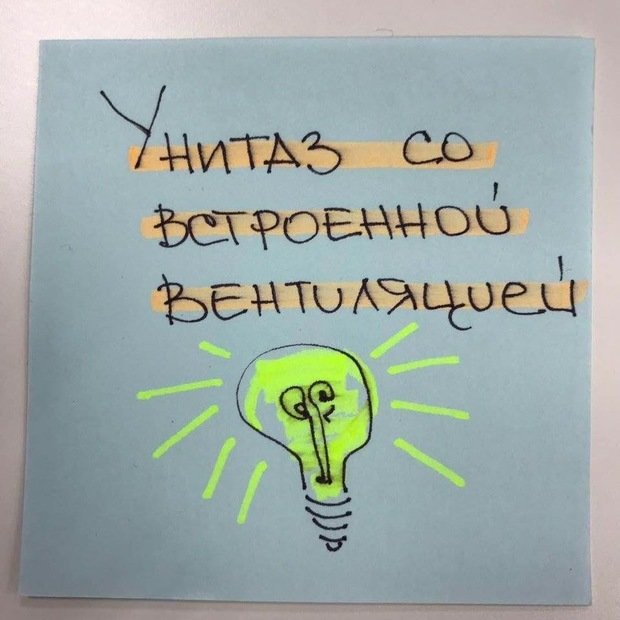 Унитаз со
встроенной
вентиляцией